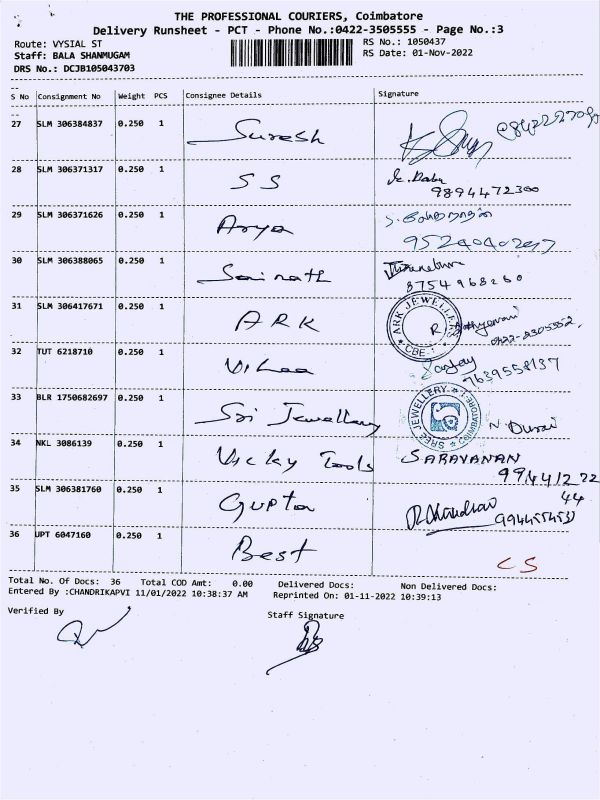 THE PROFESSIONAL COURIERS, Coimbatore
Delivery Runsheet - PCT - Phone No.:0422-3505555 - Page No.:3
Route: VYSIAL ST
RS No.: 1050437
Staff: BALA SHANMUGAM
RS Date: 01-Nov-2022
DRS No.: DCJB105043703
S No Consignment No Weight PCS Consignee Details Signature
27 SLM 306384837 0.250 1 Suresh
28 SLM 306371317 0.250 1 S S
9894472300
29 SLM 306371626 0.250 1 Arya
30 SLM 306388065 0.250 1 Sai nath
8754968260
31 SLM 306417671 0.250 1 ARK
ARK JEWELLERY
CBE-1
32 TUT 6218710 0.250 1
7639558137
33 BLR 1750682697 0.250 1 Sri Jewellery N Durai
SREE JEWELLERY COIMBATORE-1
34 NKL 3086139 0.250 1 Vicky Tools SARAVANAN
99441222
44
35 SLM 306381760 0.250 1 Gupta
36 UPT 6047160 0.250 1 Best CS
Total No. Of Docs: 36 Total COD Amt: 0.00 Delivered Docs: Non Delivered Docs:
Entered By :CHANDRIKAPVI 11/01/2022 10:38:37 AM Reprinted On: 01-11-2022 10:39:13
Verified By
Staff Signature